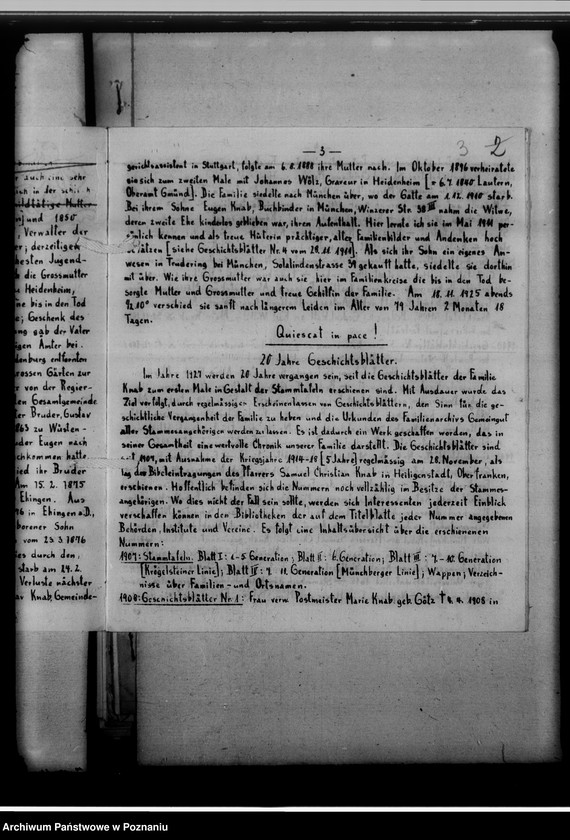 auch eine sehr
ich in der
Mutter
und 1850
Verwalter der
er; derzeitigen
besten Jugend-
die Grossmutter
Heidenheim;
ne bis in den Tod
e; Geschenk des
ung agb der Vater
igen Amter bei.
denburg entfernten
rossen Gärten zur
von der Regier-
len Gesamtgemeinde
ter Bruder, Gustav
1863 zu Wüsten-
oder Eugen nach
chkommen hatte
ied ihr Bruder
Am 15. 2. 1875
Ehingen. Aus
76 in Ehingen a.D.,
borener Sohn
vom 23 3 1876
ies durch den,
starb am 24. 2.
Verluste nächster
av Knab, Gemeinde-
— 3 —
3 2
gerichtsassistent in Stuttgart, folgte am 6. 8. 1888 ihre Mutter nach. Im Oktober 1896 verheiratete
sie sich zum zweiten Male mit Johannes Wölz, Graveur in Heidenheim [* 6. 7. 1840 Lautern,
Oberamt Gmünd]. Die Familie siedelte nach München über, wo der Gatte am 1. 12. 1910 starb.
Bei ihrem Sohne Eugen Knab, Buchbinder in München, Winzerer Str. 38 III nahm die Witwe,
deren zweite Ehe kinderlos geblieben war, ihren Aufenthalt. Hier lernte ich sie im Mai 1911 per-
sönlich kennen und als treue Hüterin prächtiger, alter Familienbilder und Andenken hoch
schätzen [siehe Geschichtsblätter Nr. 4 vom 28. 11. 1911]. Als sich ihr Sohn ein eigenes An-
wesen in Trudering bei München, Solalindenstrasse 59 gekauft hatte, siedelte sie dorthin
mit über. Wie ihre Grossmutter war auch sie hier im Familienkreise die bis in den Tod be-
sorgte Mutter und Grossmutter und treue Gehilfin der Familie. Am 18. 11. 1925 abends
verschied sie sanft nach längerem Leiden im Alter von 79 Jahren 2 Monaten 18
Tagen.
Quiescat in pace!
20 Jahre Geschichtsblätter.
Im Jahre 1927 werden 20 Jahre vergangen sein, seit die Geschichtsblätter der Familie
Knab zum ersten Male in Gestalt der Stammtafeln erschienen sind. Mit Ausdauer wurde das
Ziel verfolgt, durch regelmässiges Erscheinenlassen von Geschichtsblättern, den Sinn für die ge-
schichtliche Vergangenheit der Familie zu heben und die Urkunden des Familienarchivs Gemeingut
aller Stammesangehörigen werden zu lassen. Es ist dadurch ein Werk geschaffen worden, das in
seiner Gesamtheit eine wertvolle Chronik unserer Familie darstellt. Die Geschichtsblätter sind
seit 1907, mit Ausnahme der Kriegsjahre 1914-18 [5 Jahre] regelmässig am 28. November, als
Tag der Bibeleintragungen des Pfarrers Samuel Christian Knab in Heiligenstadt, Oberfranken,
erschienen. Hoffentlich befinden sich die Nummern noch vollzählig im Besitze der Stammes-
angehörigen. Wo dies nicht der Fall sein sollte, werden sich Interessenten jederzeit Einblick
verschaffen können in den Bibliotheken der auf dem Titelblatte jeder Nummer angegebenen
Behörden, Institute und Vereine. Es folgt eine Inhaltsübersicht über die erschienenen
Nummern:
1907: Stammtafeln. Blatt I: 1-5 Generation; Blatt II: 6. Generation; Blatt III: 7-10. Generation
[Krögelsteiner Linie]; Blatt IV: 7. 11. Generation [Münchberger Linie]; Wappen; Verzeich-
nisse über Familien- und Ortsnamen.
1908: Geschichtsblätter Nr. 1: Frau verw. Postmeister Marie Knab geb. Götz † 8. 4. 1908 in
Archiwum Państwowe w Poznaniu